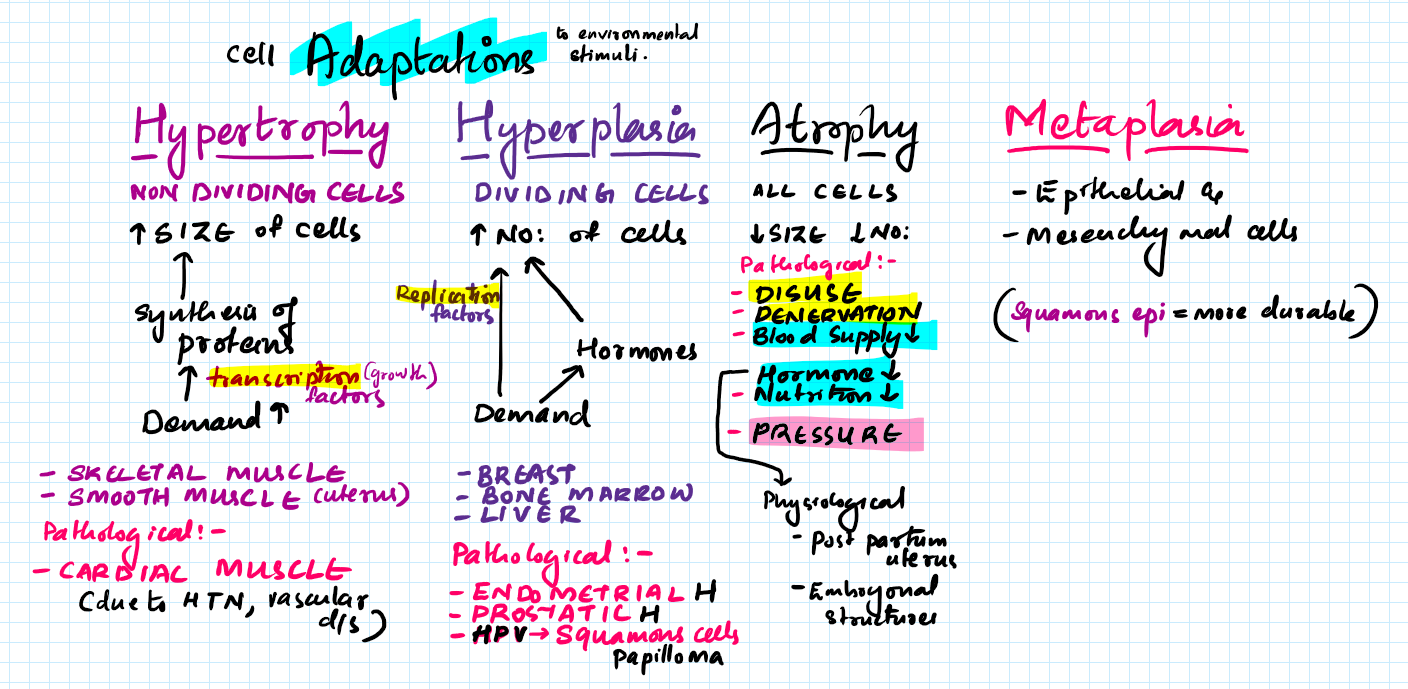 cell Adaptations to environmental
stimuli.
Hypertrophy
NON DIVIDING CELLS
↑ SIZE of cells
synthesis of
proteins
transcription (growth)
factors
Demand ↑
- SKELETAL MUSCLE
- SMOOTH MUSCLE (uterus)
Pathological:-
- CARDIAC MUSCLE
(due to HTN, vascular
d/s)
Hyperplasia
DIVIDING CELLS
↑ NO: of cells
Replication
factors
Hormones
Demand
- BREAST
- BONE MARROW
- LIVER
Pathological:-
- ENDOMETRIAL H
- PROSTATIC H
- HPV → Squamous cells
papilloma
Atrophy
ALL CELLS
↓SIZE ↓NO:
Pathological:-
- DISUSE
- DENERVATION
- Blood Supply↓
Hormone ↓
- Nutrition ↓
- PRESSURE
Physiological
- Post partum
uterus
- Embryonal
structures
Metaplasia
- Epithelial &
- Mesenchymal cells
(Squamous epi = more durable)